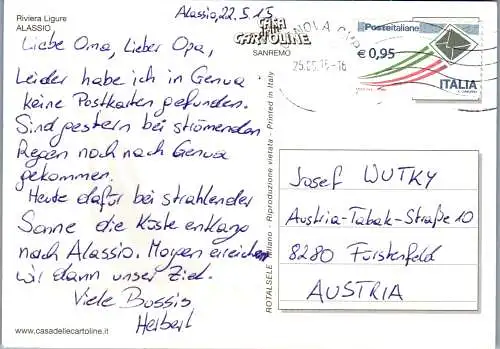 Riviera Ligure
ALASSIO
Alassio, 22.5.15
CASA
delle
CARTOLINE
SANREMO
Liebe Oma, Lieber Opa,
Leider habe ich in Genua
keine Postkarten gefunden.
Sind gestern bei strömenden
Regen noch nach Genua
gekommen.
Heute dafür bei strahlender
Sonne die Küste entlang
nach Alassio. Morgen erreichen
wir dann unser Ziel.
Viele Bussis
Herbert
www.casadellecartoline.it
ROTALSELE Milano - Riproduzione vietata - Printed in Italy
NOVA
25.05.15-16
Posteitaliane
€ 0,95
ITALIA
Josef WUTKY
Austria-Tabak-Straße 10
8280 Fürstenfeld
AUSTRIA